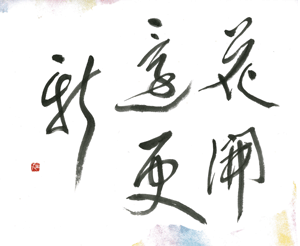 花開
意更
新